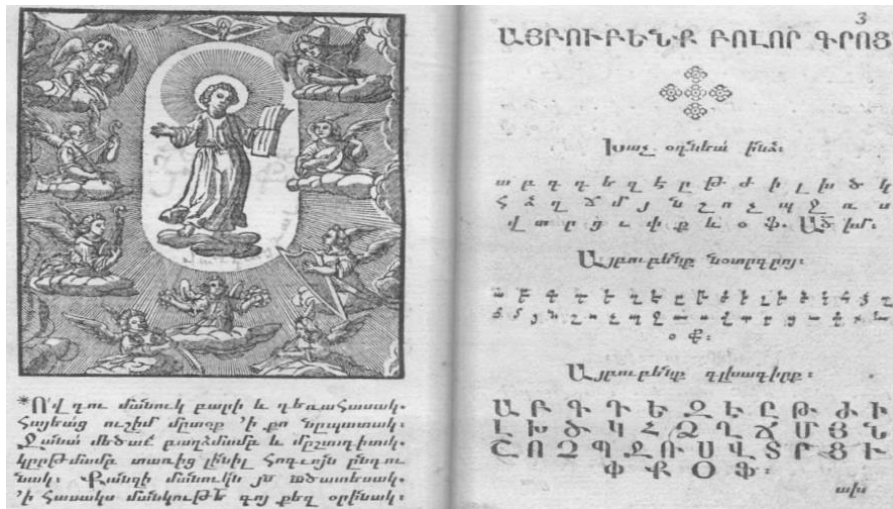 *Ո՛վ դու մանուկ բարի և դեռահասակ.
Հայեաց ուշիմ մտօք ՛ի քո նպատակ.
Ջանա մեծաւ բաղձմամբ և մշտադիտակ.
կրթմամբ տառից լինիլ հոգւոյն ընդու
նակ։ Քանզի մանուկն յս ածատեսակ.
՛ի հասակս մանկութե գոյ քեզ օրինակ։
3
ԱՅԲՈՒԲԵՆՔ ԲՈԼՈՐ ԳՐՈՅ
Խաչ օգնեա՛ ինձ։
ա բ գ դ ե զ է ը թ ժ ի լ խ ծ կ
հ ձ ղ ճ մ յ ն շ ո չ պ ջ ռ ս
վ տ ր ց ւ փ ք և օ ֆ. Ած իմ։
Այբուբենք նօտրգրոյ։
ա բ գ դ ե զ է ը թ ժ ի լ խ ծ կ հ ձ ղ
ճ մ յ ն շ ո չ պ ջ ռ ս վ տ ր ց ւ փ ք և
օ ֆ։
Այբուբենք գլխագիրք։
Ա Բ Գ Դ Ե Զ Է Ը Թ Ժ Ի
Լ Խ Ծ Կ Հ Ձ Ղ Ճ Մ Յ Ն
Շ Ո Չ Պ Ջ Ռ Ս Վ Տ Ր Ց Ւ
Փ Ք Օ Ֆ։
ախ